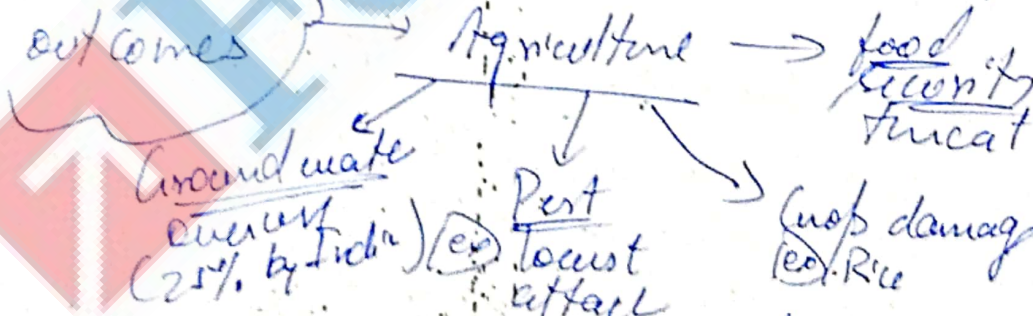 outcomes → Agriculture → food
security
threat
Ground wate
overuse
(25% by India)
(ex)
Pest
locust
attack
Crop damag
(ex). Rice